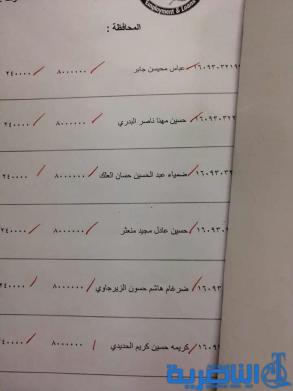 Employment & Loans
المحافظة :
١٦٠٩٣٠٣٢١٩ عباس محيسن جابر ٨٠٠٠٠٠٠ ٢٤٠٠٠٠
١٦٠٩٣٠٣٢١ حسين مهنا ناصر البدري ٨٠٠٠٠٠٠ ٢٤٠٠٠٠
١٦٠٩٣٠٣ ضمياء عبد الحسين حسان العلك ٨٠٠٠٠٠٠ ٢٤٠٠٠٠
١٦٠٩٣٠ حسين عادل مجيد منعثر ٨٠٠٠٠٠٠ ٢٤٠٠٠٠
١٦٠٩٣٠ ضرغام هاشم حسون الزيرجاوي ٨٠٠٠٠٠٠ ٢٤٠٠٠٠
١٦٠٩٣ كريمه حسين كريم الحديدي ٨٠٠٠٠٠٠ ٢٤٠٠٠٠
الناصرية